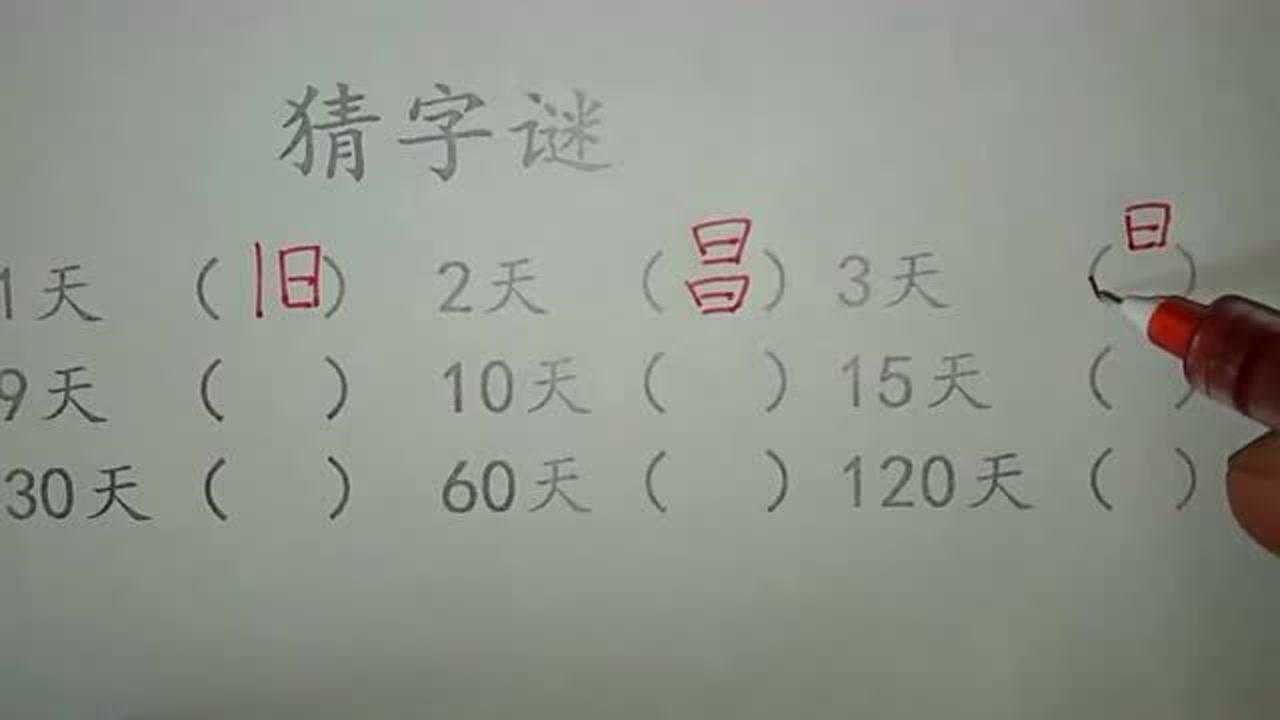 猜字谜
1天 (旧) 2天 (昌) 3天 (日)
9天 ( ) 10天 ( ) 15天 ( )
30天 ( ) 60天 ( ) 120天 ( )